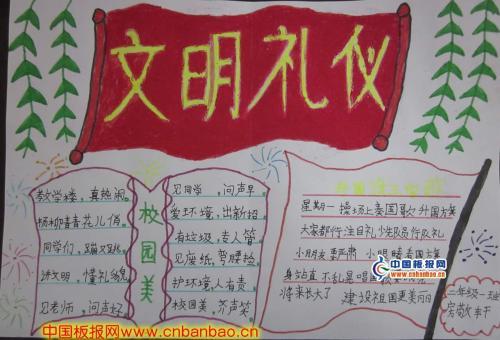 文明礼仪
教学楼，真热闹
杨柳青青花儿俏
同学们，蹦又跳
讲文明，懂礼貌
见老师，问声好
校园美
见同学，问声早
爱环境，出新招
有垃圾，专人管
见废纸，弯腰捡
护环境，人有责
校园美，齐声笑
星期一操场上奏国歌升国旗
大家都行注目礼少先队员行队礼
小朋友要严肃小眼睛看国旗
身站直不乱晃唱国歌要
将来长大了 建设祖国更美丽
二年级一班
中国板报网
www.cnbanbao.cn
中国板报网www.cnbanbao.cn